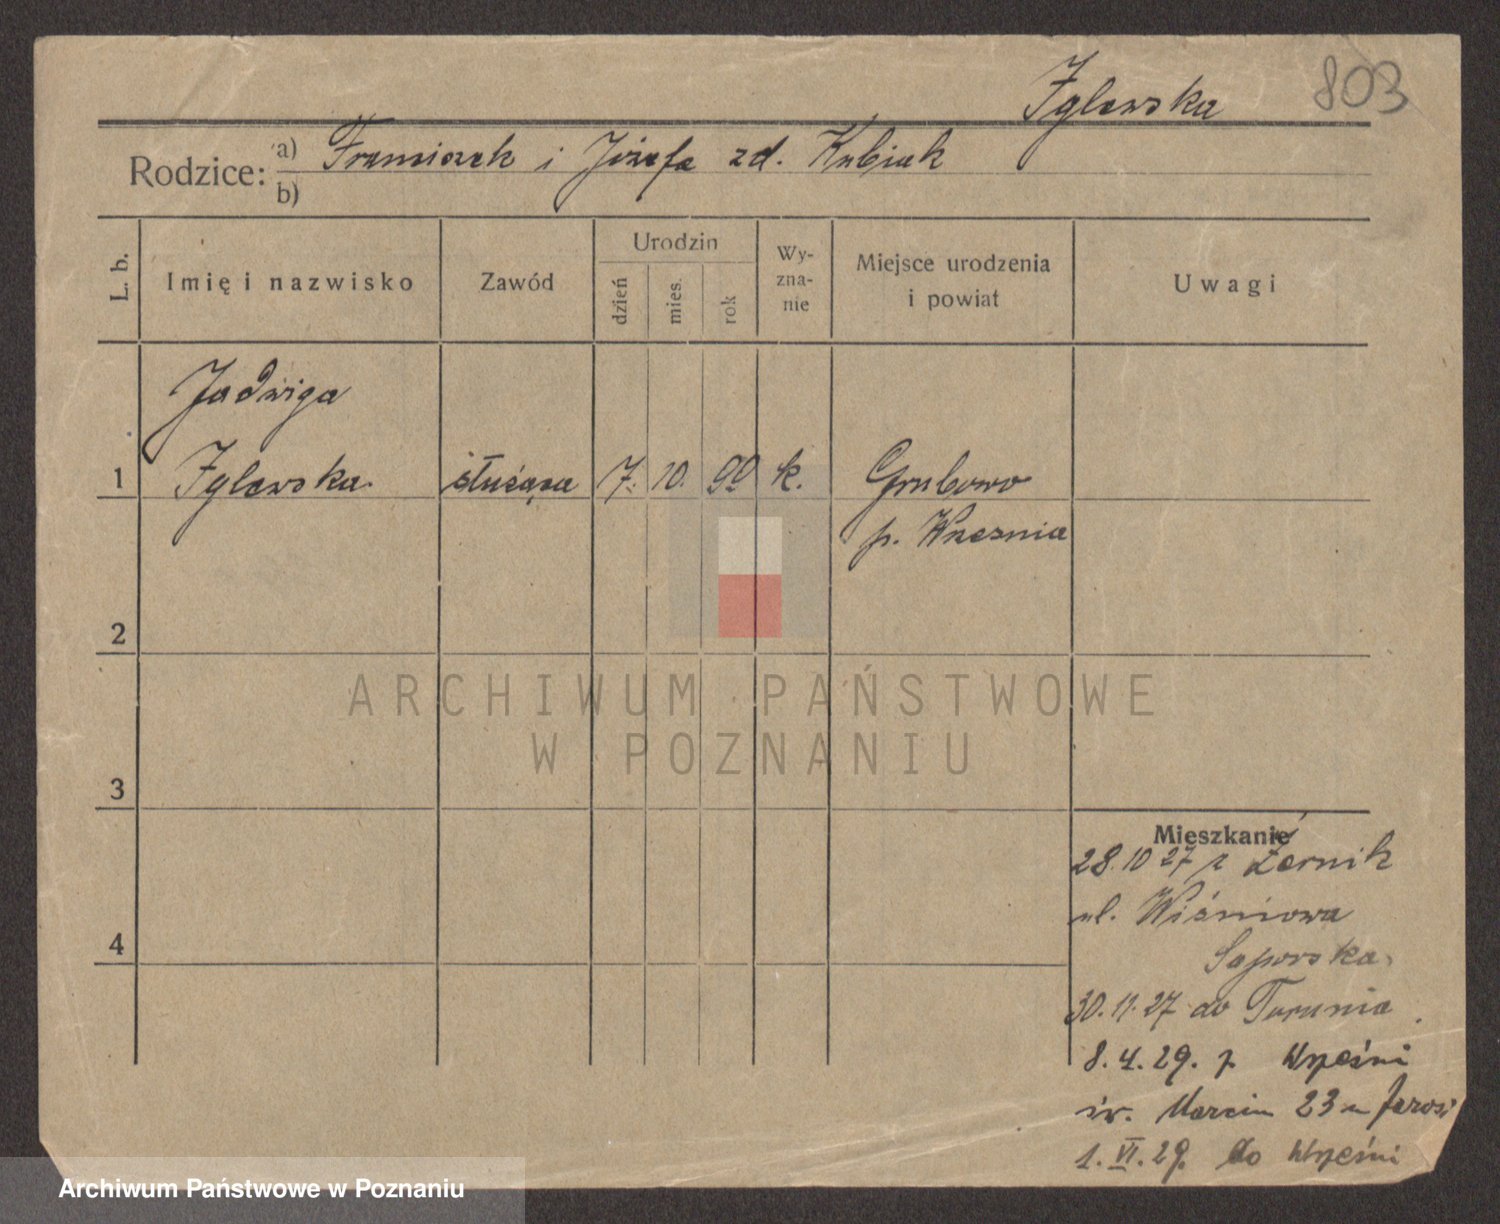 Zglewska
803
Rodzice: a) Franciszek i Józefa zd. Kubiak
b)
L. b.
Imię i nazwisko
Zawód
Urodzin
dzień
mies.
rok
Wy-
zna-
nie
Miejsce urodzenia
i powiat
Uwagi
Jadwiga
1 Zglewska służąca 7. 10. k. Grubowo
p. Września
2
3
4
Mieszkanie
28.10 27 z Żernik
ul. Wiśniowa
30.11.27 do Torunia
8.4.29. z Wrześni
św. Marcin 23
1.VI.29. do Wrześni
ARCHIWUM PAŃSTWOWE
W POZNANIU
Archiwum Państwowe w Poznaniu